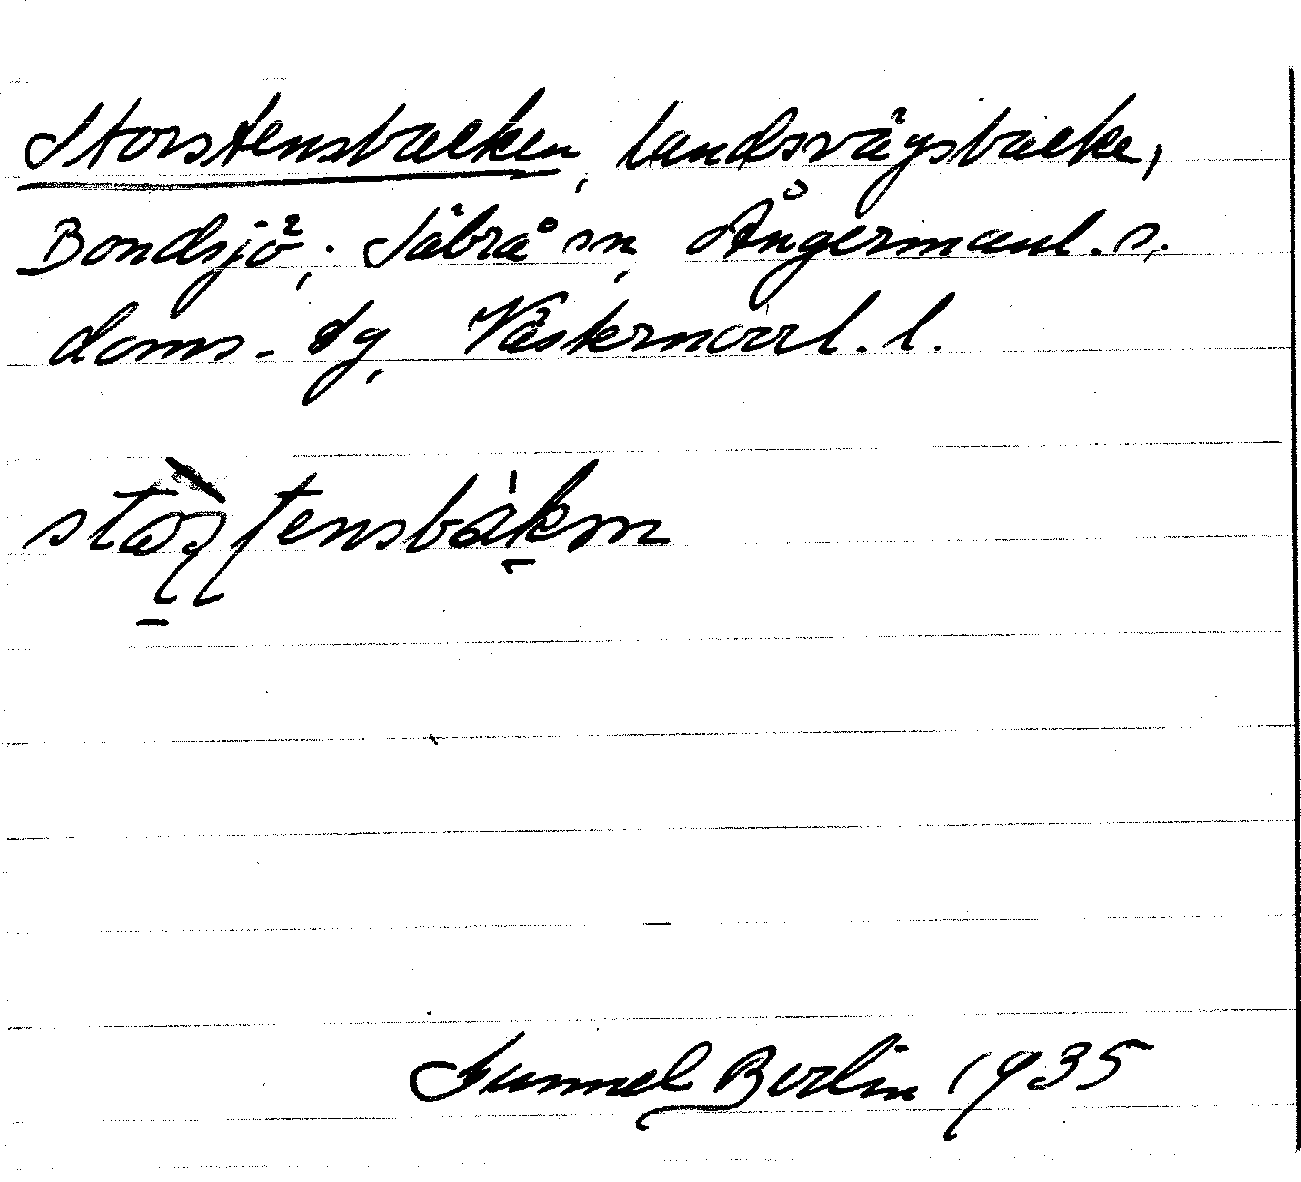 Storstensbacken, landsvägsbacke,
Bondsjö, Säbrå sn, Ångermanl. s.
doms-dg, Västernorrl. l.
Gunnel Berlin 1935